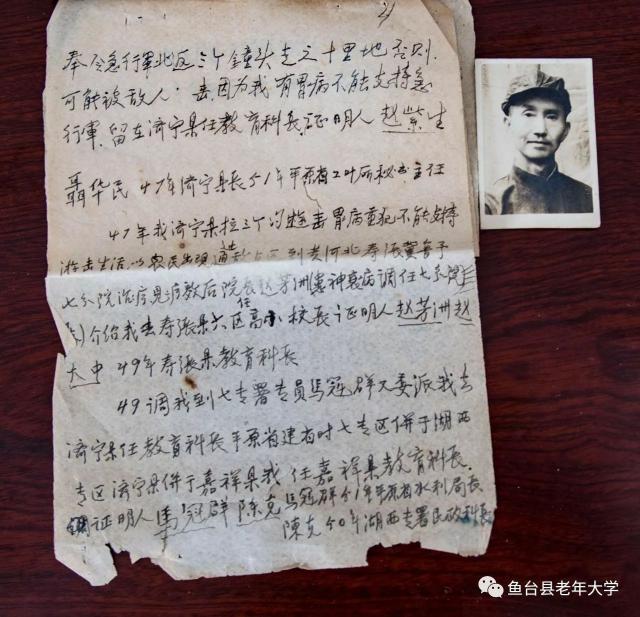 21
奉令急行军北返三个钟头走三十里地否则
可能被敌人 击因为我有胃病不能支持急
行军.留在济宁县任教育科长.证明人 赵紫生
聂华民 47年济宁县长 年平原省工业厅秘书主任
47年我济宁县拉三个沟游击胃病重犯不能支持
游击生活以农民出现通 到黄河北寿张冀鲁予
七分院治疗见 后院长赵芳洲 神衰病调任七分院
介绍我去寿张县六区高小任校长证明人赵芳洲赵
大中 49年寿张县教育科长
49调我到七专署专员马冠群又委派我去
济宁县任教育科长平原省建省时七专区併于湖西
专区济宁县併于嘉祥县我任嘉祥县教育科长.
证明人马冠群 陈克 马冠群 年平原省水利局长
陈克 50年湖西专署民政科长
鱼台县老年大学